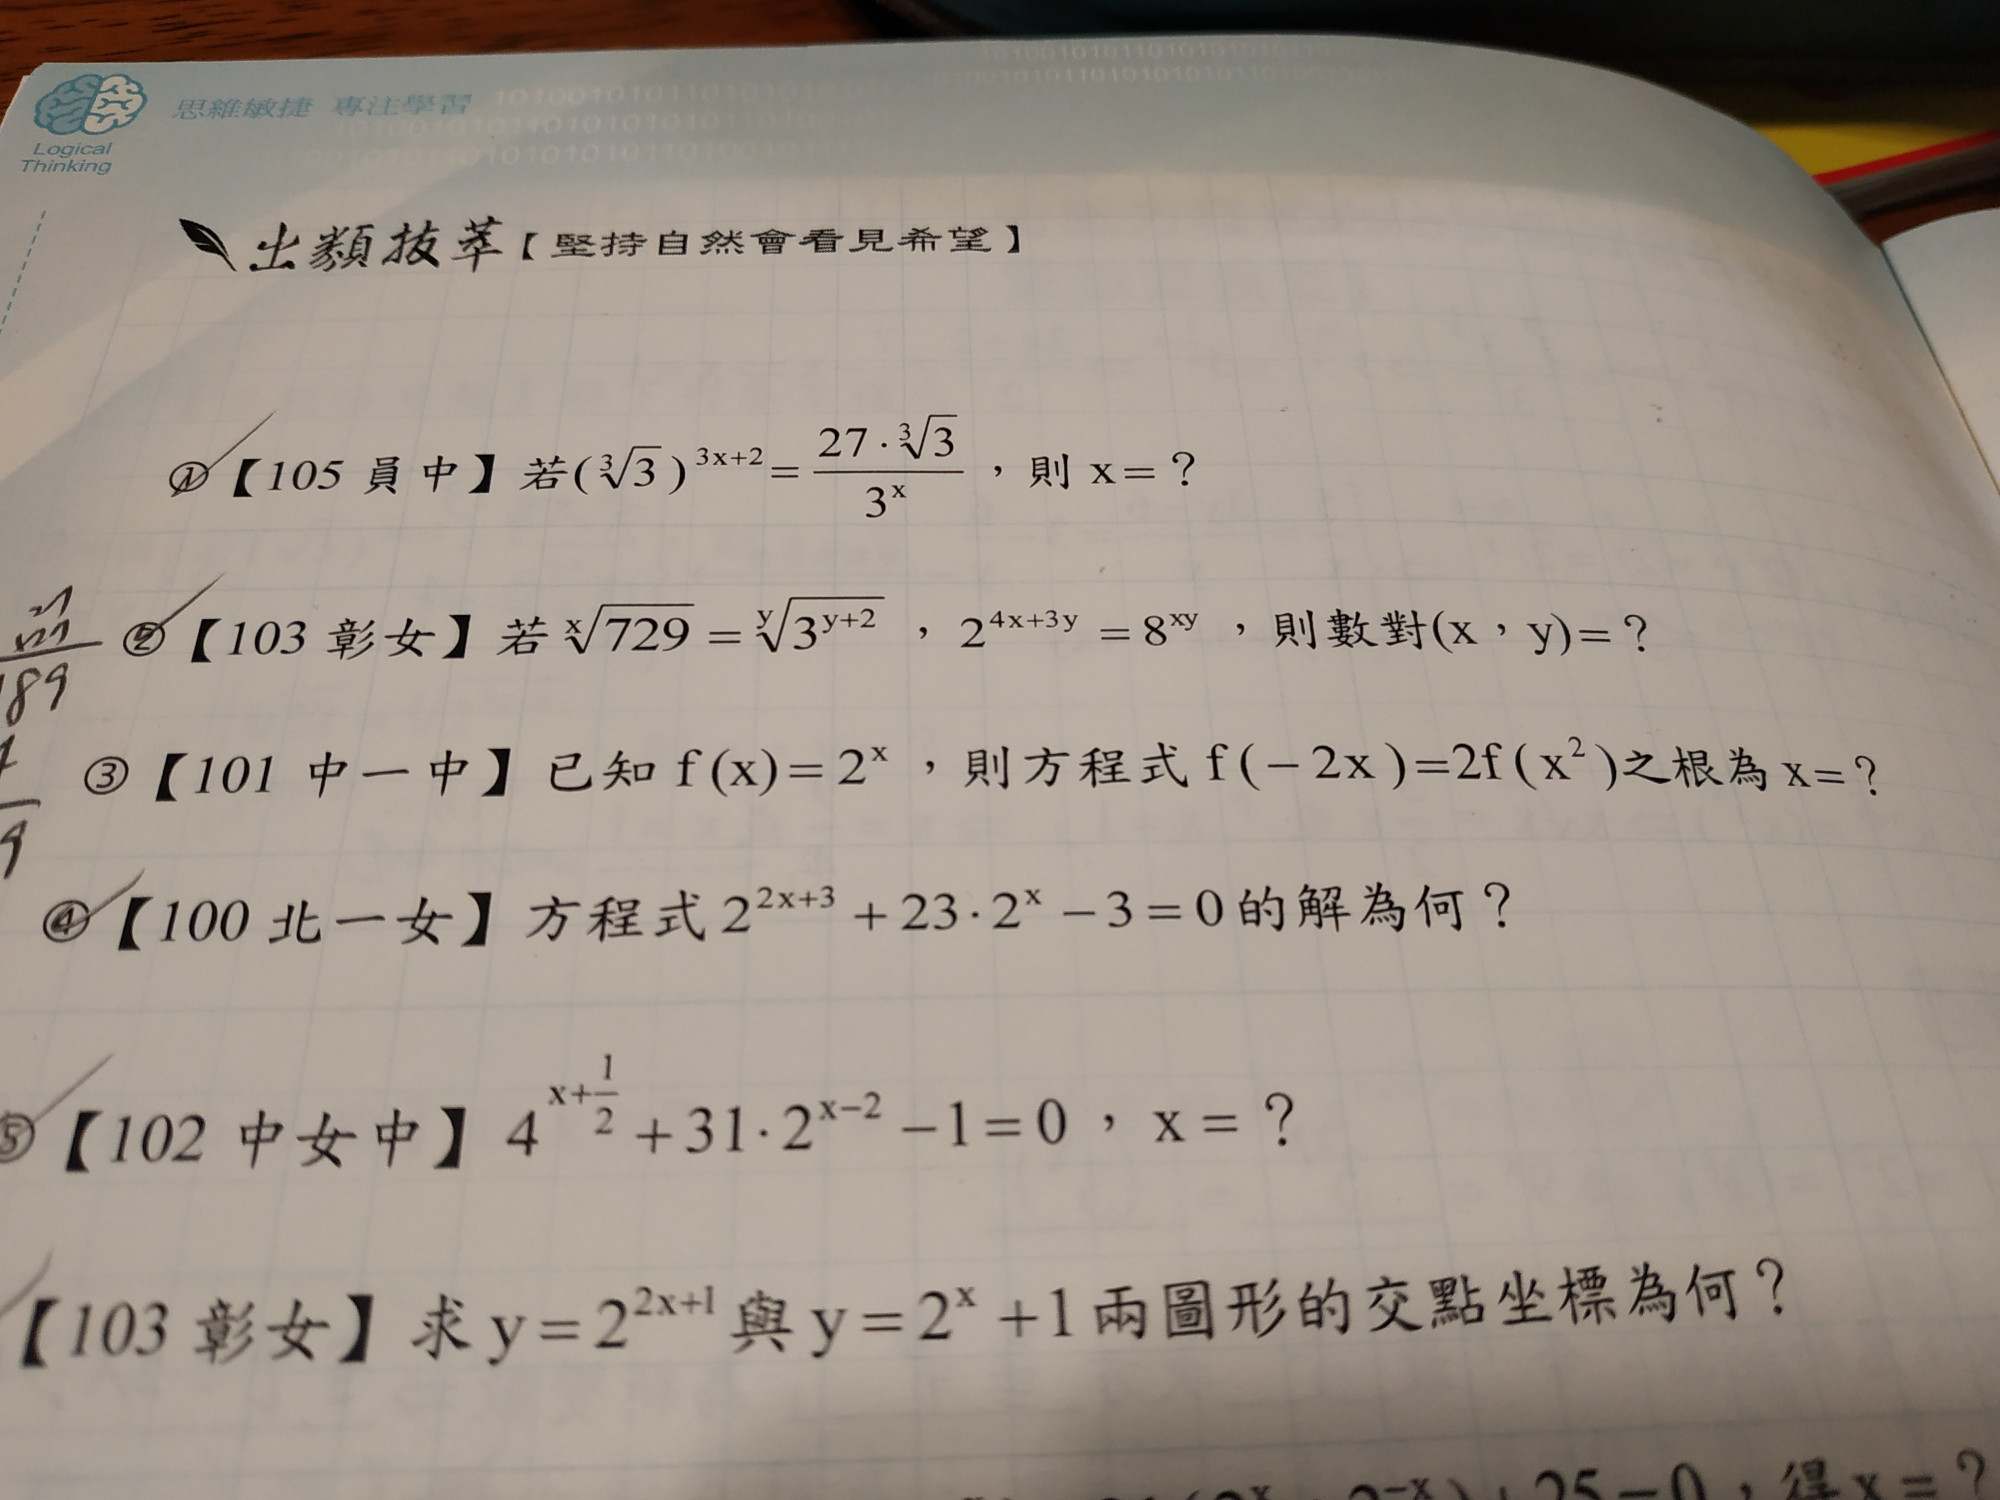 思維敏捷 專注學習
Logical
Thinking
出類拔萃【堅持自然會看見希望】
①【105 員中】若(∛3)^{3x+2}=\frac{27·∛3}{3^x},則 x=?
②【103 彰女】若\sqrt[x]{729}=\sqrt[y]{3^{y+2}},2^{4x+3y}=8^{xy},則數對(x,y)=?
189
③【101 中一中】已知 f(x)=2^x,則方程式 f(-2x)=2f(x²)之根為 x=?
9
④【100 北一女】方程式 2^{2x+3}+23·2^x-3=0的解為何?
⑤【102 中女中】4^{x+\frac{1}{2}}+31·2^{x-2}-1=0,x=?
【103 彰女】求 y=2^{2x+1} 與 y=2^x+1 兩圖形的交點坐標為何?
25=0,得 x=?